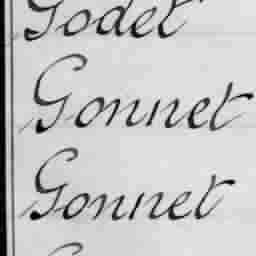 Godet
Gonnet
Gonnet